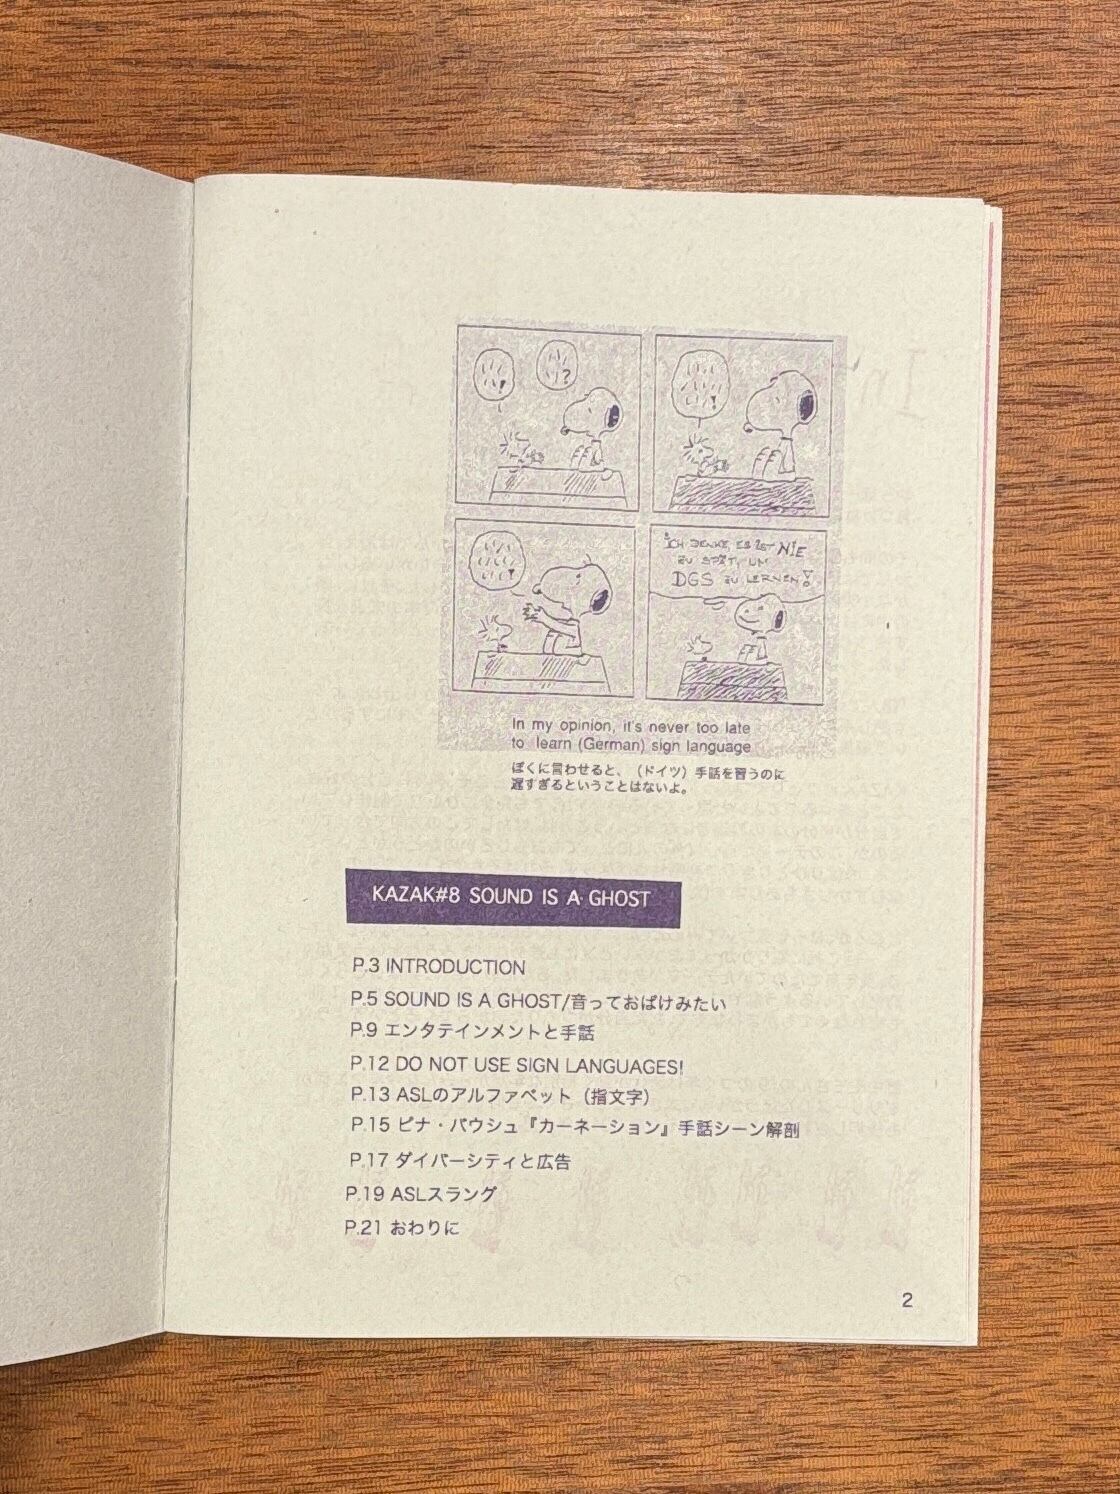 ?
ICH DENKE, ES IST NIE
ZU SPÄT, UM
DGS ZU LERNEN!
In my opinion, it's never too late
to learn (German) sign language
ぼくに言わせると、（ドイツ）手話を習うのに
遅すぎるということはないよ。
KAZAK#8 SOUND IS A GHOST
P.3 INTRODUCTION
P.5 SOUND IS A GHOST/音っておばけみたい
P.9 エンタテインメントと手話
P.12 DO NOT USE SIGN LANGUAGES!
P.13 ASLのアルファベット（指文字）
P.15 ピナ・バウシュ『カーネーション』手話シーン解剖
P.17 ダイバーシティと広告
P.19 ASLスラング
P.21 おわりに
2